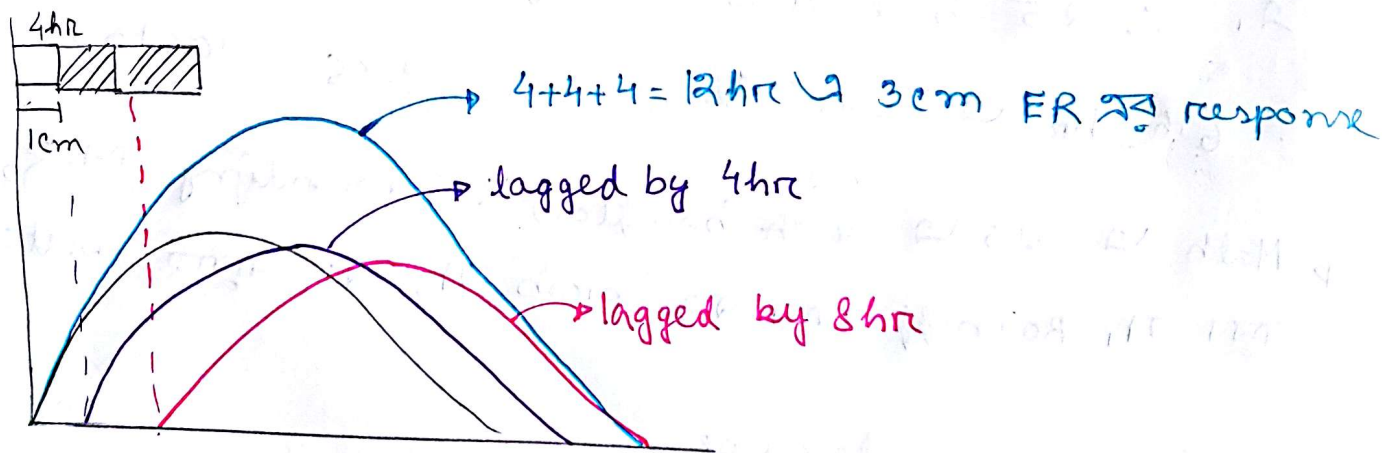 4hr
1cm
4+4+4 = 12hr এ 3cm ER এর response
lagged by 4hr
lagged by 8hr